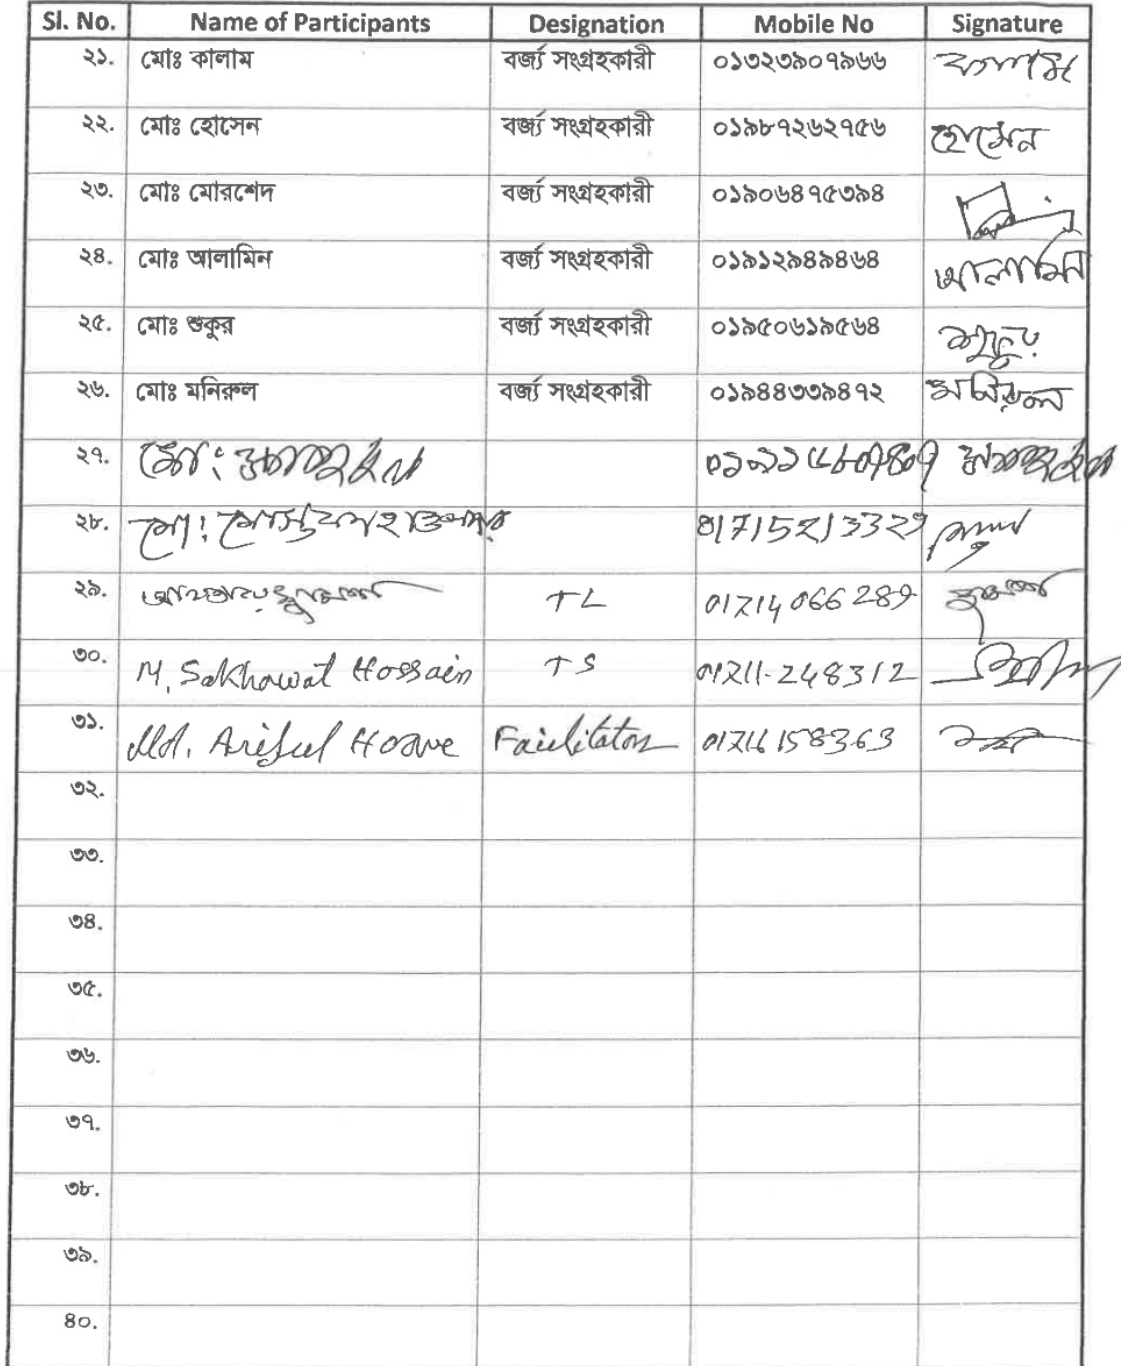 Sl. No. Name of Participants Designation Mobile No Signature
২১. মোঃ কালাম বর্জ্য সংগ্রহকারী ০১৩২৩৯০৭৯৬৬ কালাম
২২. মোঃ হোসেন বর্জ্য সংগ্রহকারী ০১৯৮৭২৬২৭৫৬ হোসেন
২৩. মোঃ মোরশেদ বর্জ্য সংগ্রহকারী ০১৯০৬৪৭৫৩৯৪
২৪. মোঃ আলামিন বর্জ্য সংগ্রহকারী ০১৯১২৯৪৯৪৬৪ আলামিন
২৫. মোঃ শুকুর বর্জ্য সংগ্রহকারী ০১৯৫০৬১৯৫৬৪ শুকুর
২৬. মোঃ মনিরুল বর্জ্য সংগ্রহকারী ০১৯৪৪৩৩৯৪৭২ মনিরুল
২৭. মো:
২৮. মো: 01715213329
২৯. TL 01714066289
৩০. M. Sakhawat Hossain TS 01711-248312
৩১. Md. Ariful Hoque Facilitator 01716158363
৩২.
৩৩.
৩৪.
৩৫.
৩৬.
৩৭.
৩৮.
৩৯.
৪০.